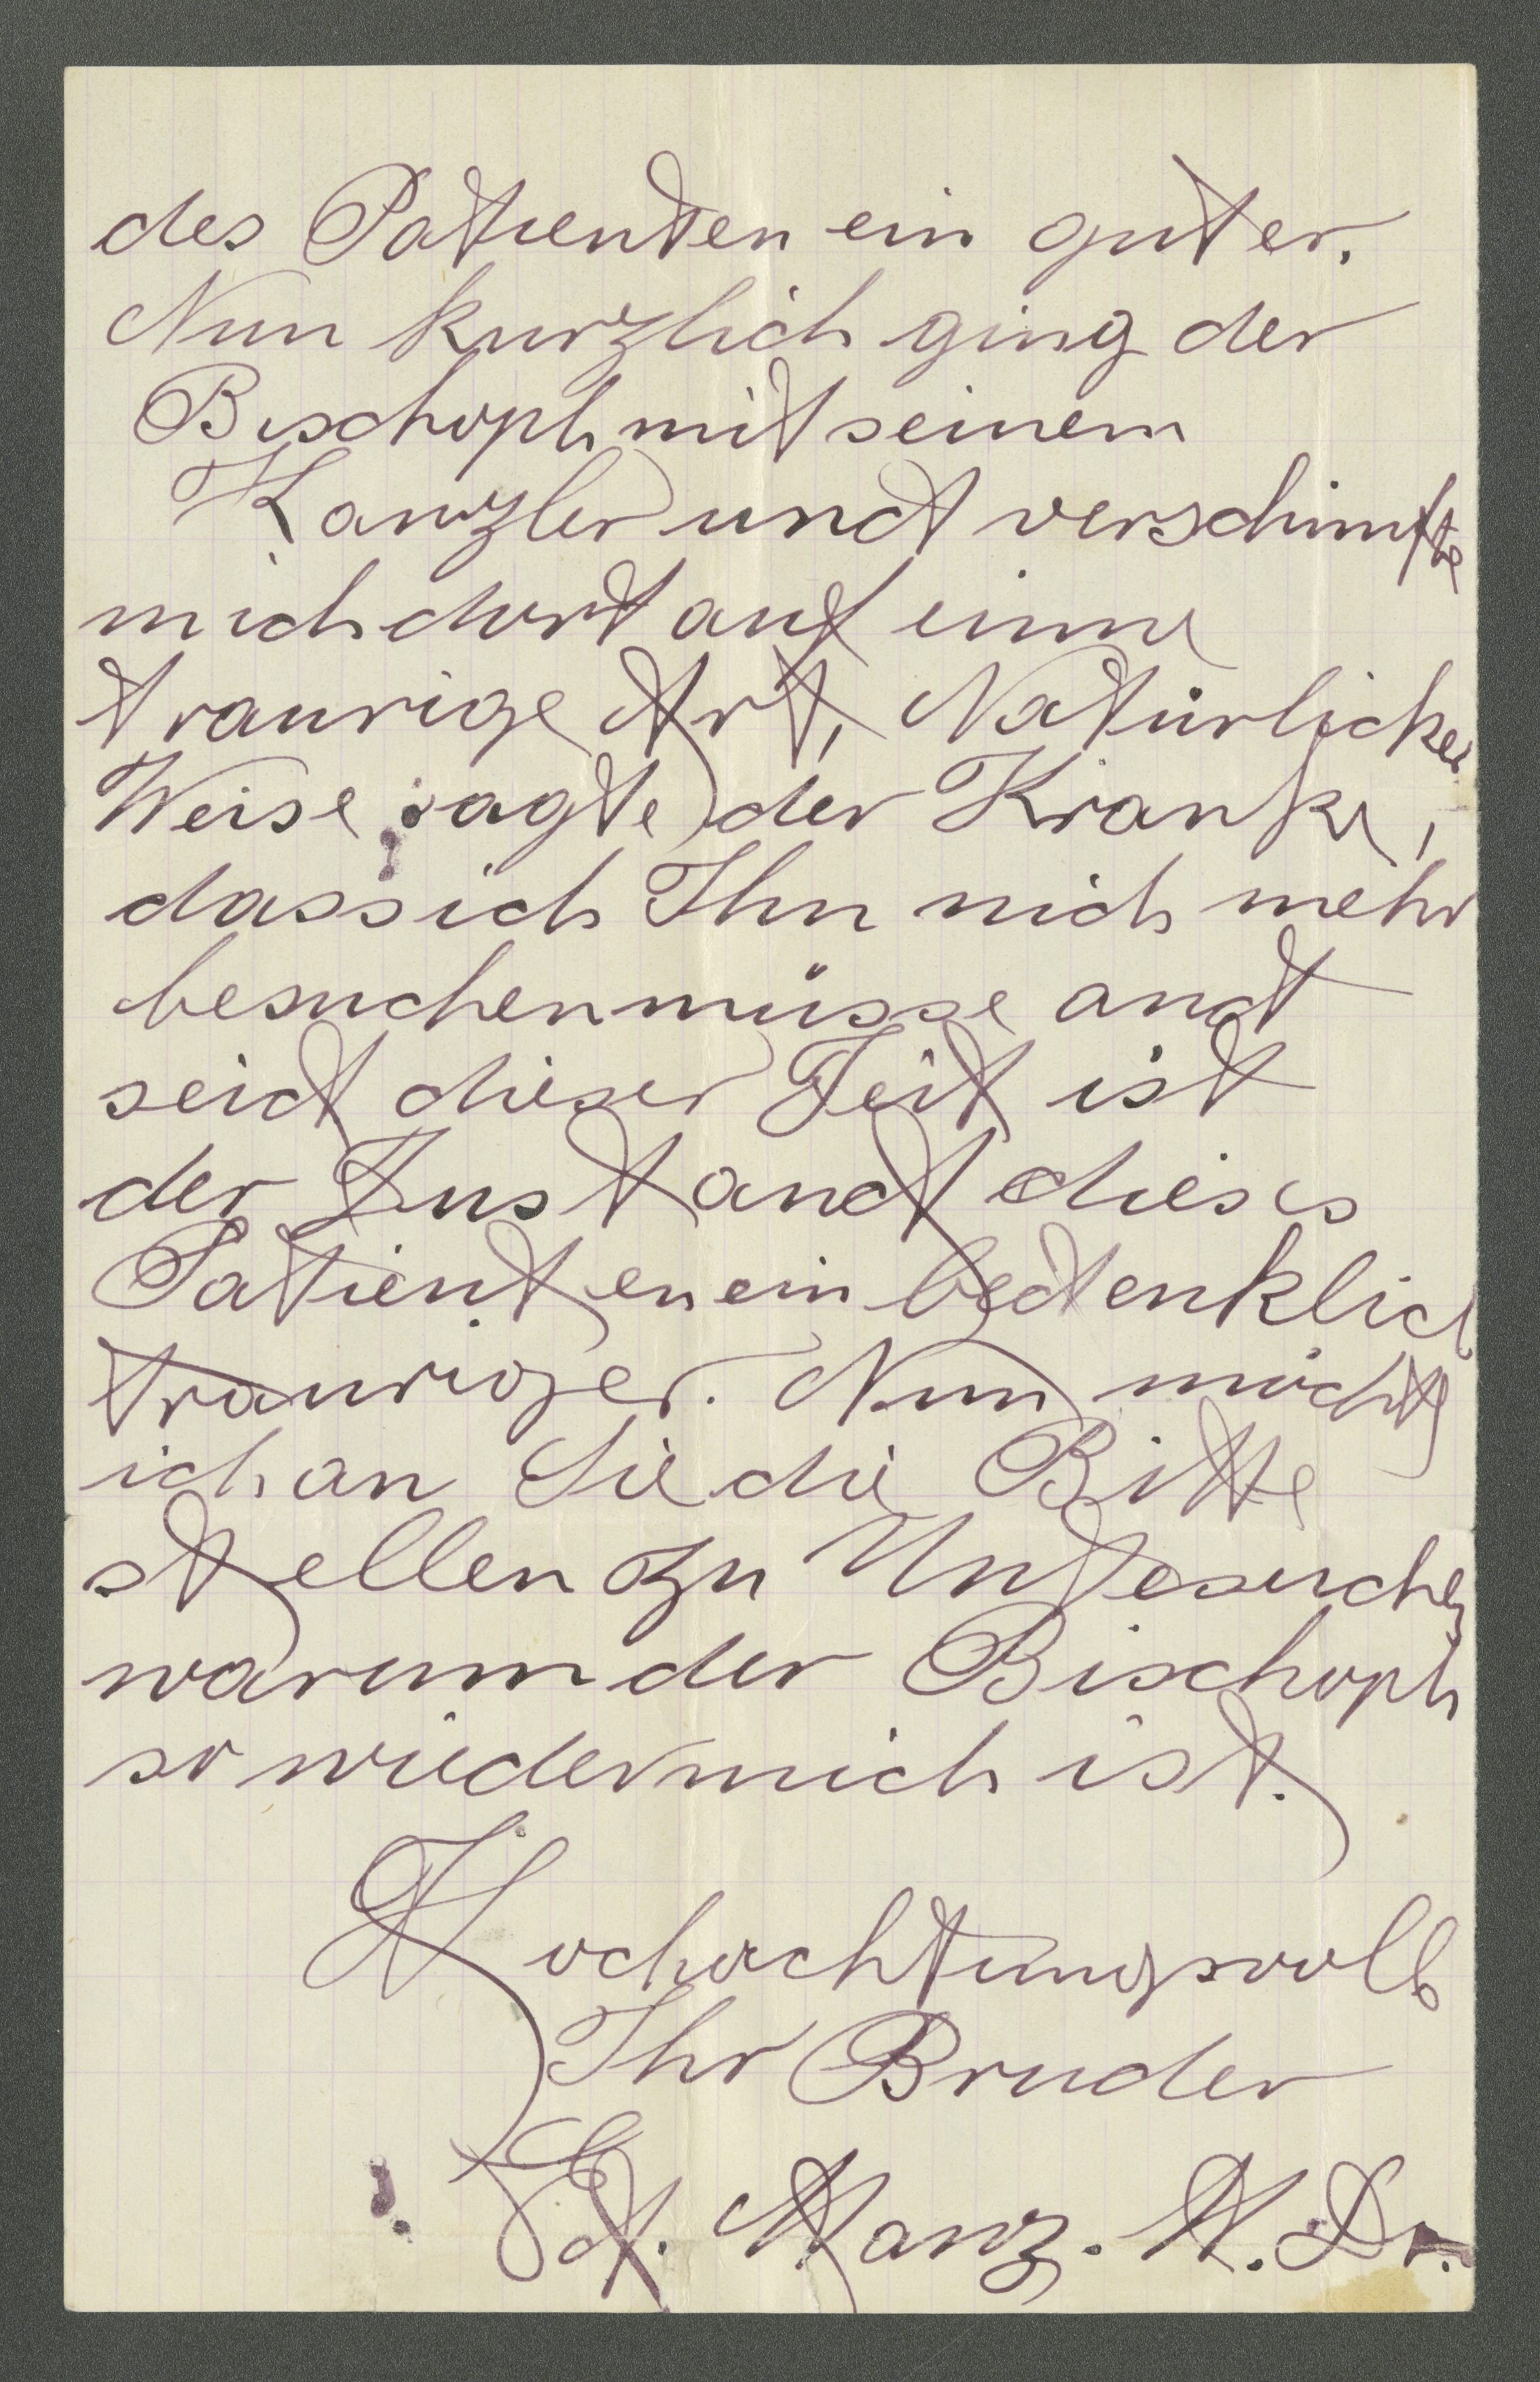 des Patienten ein guter.
Nun kurzlich ging der
Bischoph mit seinem
Kanzler undt verschimfte
mich dort auf eine
traurige Art, Natürlicher
Weise sagte der Kranke,
dass ich Ihn nich mehr
besuchen müsse andt
seidt dieser Zeit ist
der Zustandt dieses
Patienten ein bedenklich
trauriger. Nun möchte
ich an Sie die Bitte
stellen zu Untesuchen
warum der Bischoph
so wieder mich ist.
Hochachtungsvoll
Ihr Bruder
Ed. Manz. M. Dr.